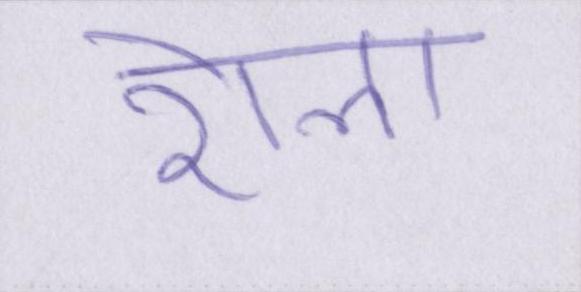 शेला